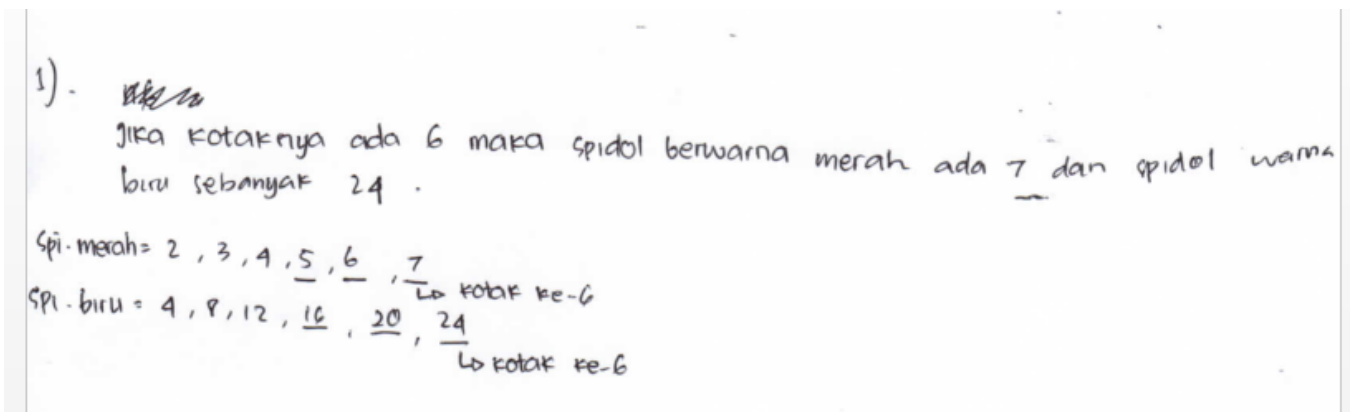 1).
Jika kotaknya ada 6 maka spidol berwarna merah ada 7 dan spidol warna
biru sebanyak 24 .
Spi. merah = 2 , 3 , 4 , 5 , 6 , 7
↳ kotak ke-6
Spi. biru = 4 , 8 , 12 , 16 , 20 , 24
↳ kotak ke-6